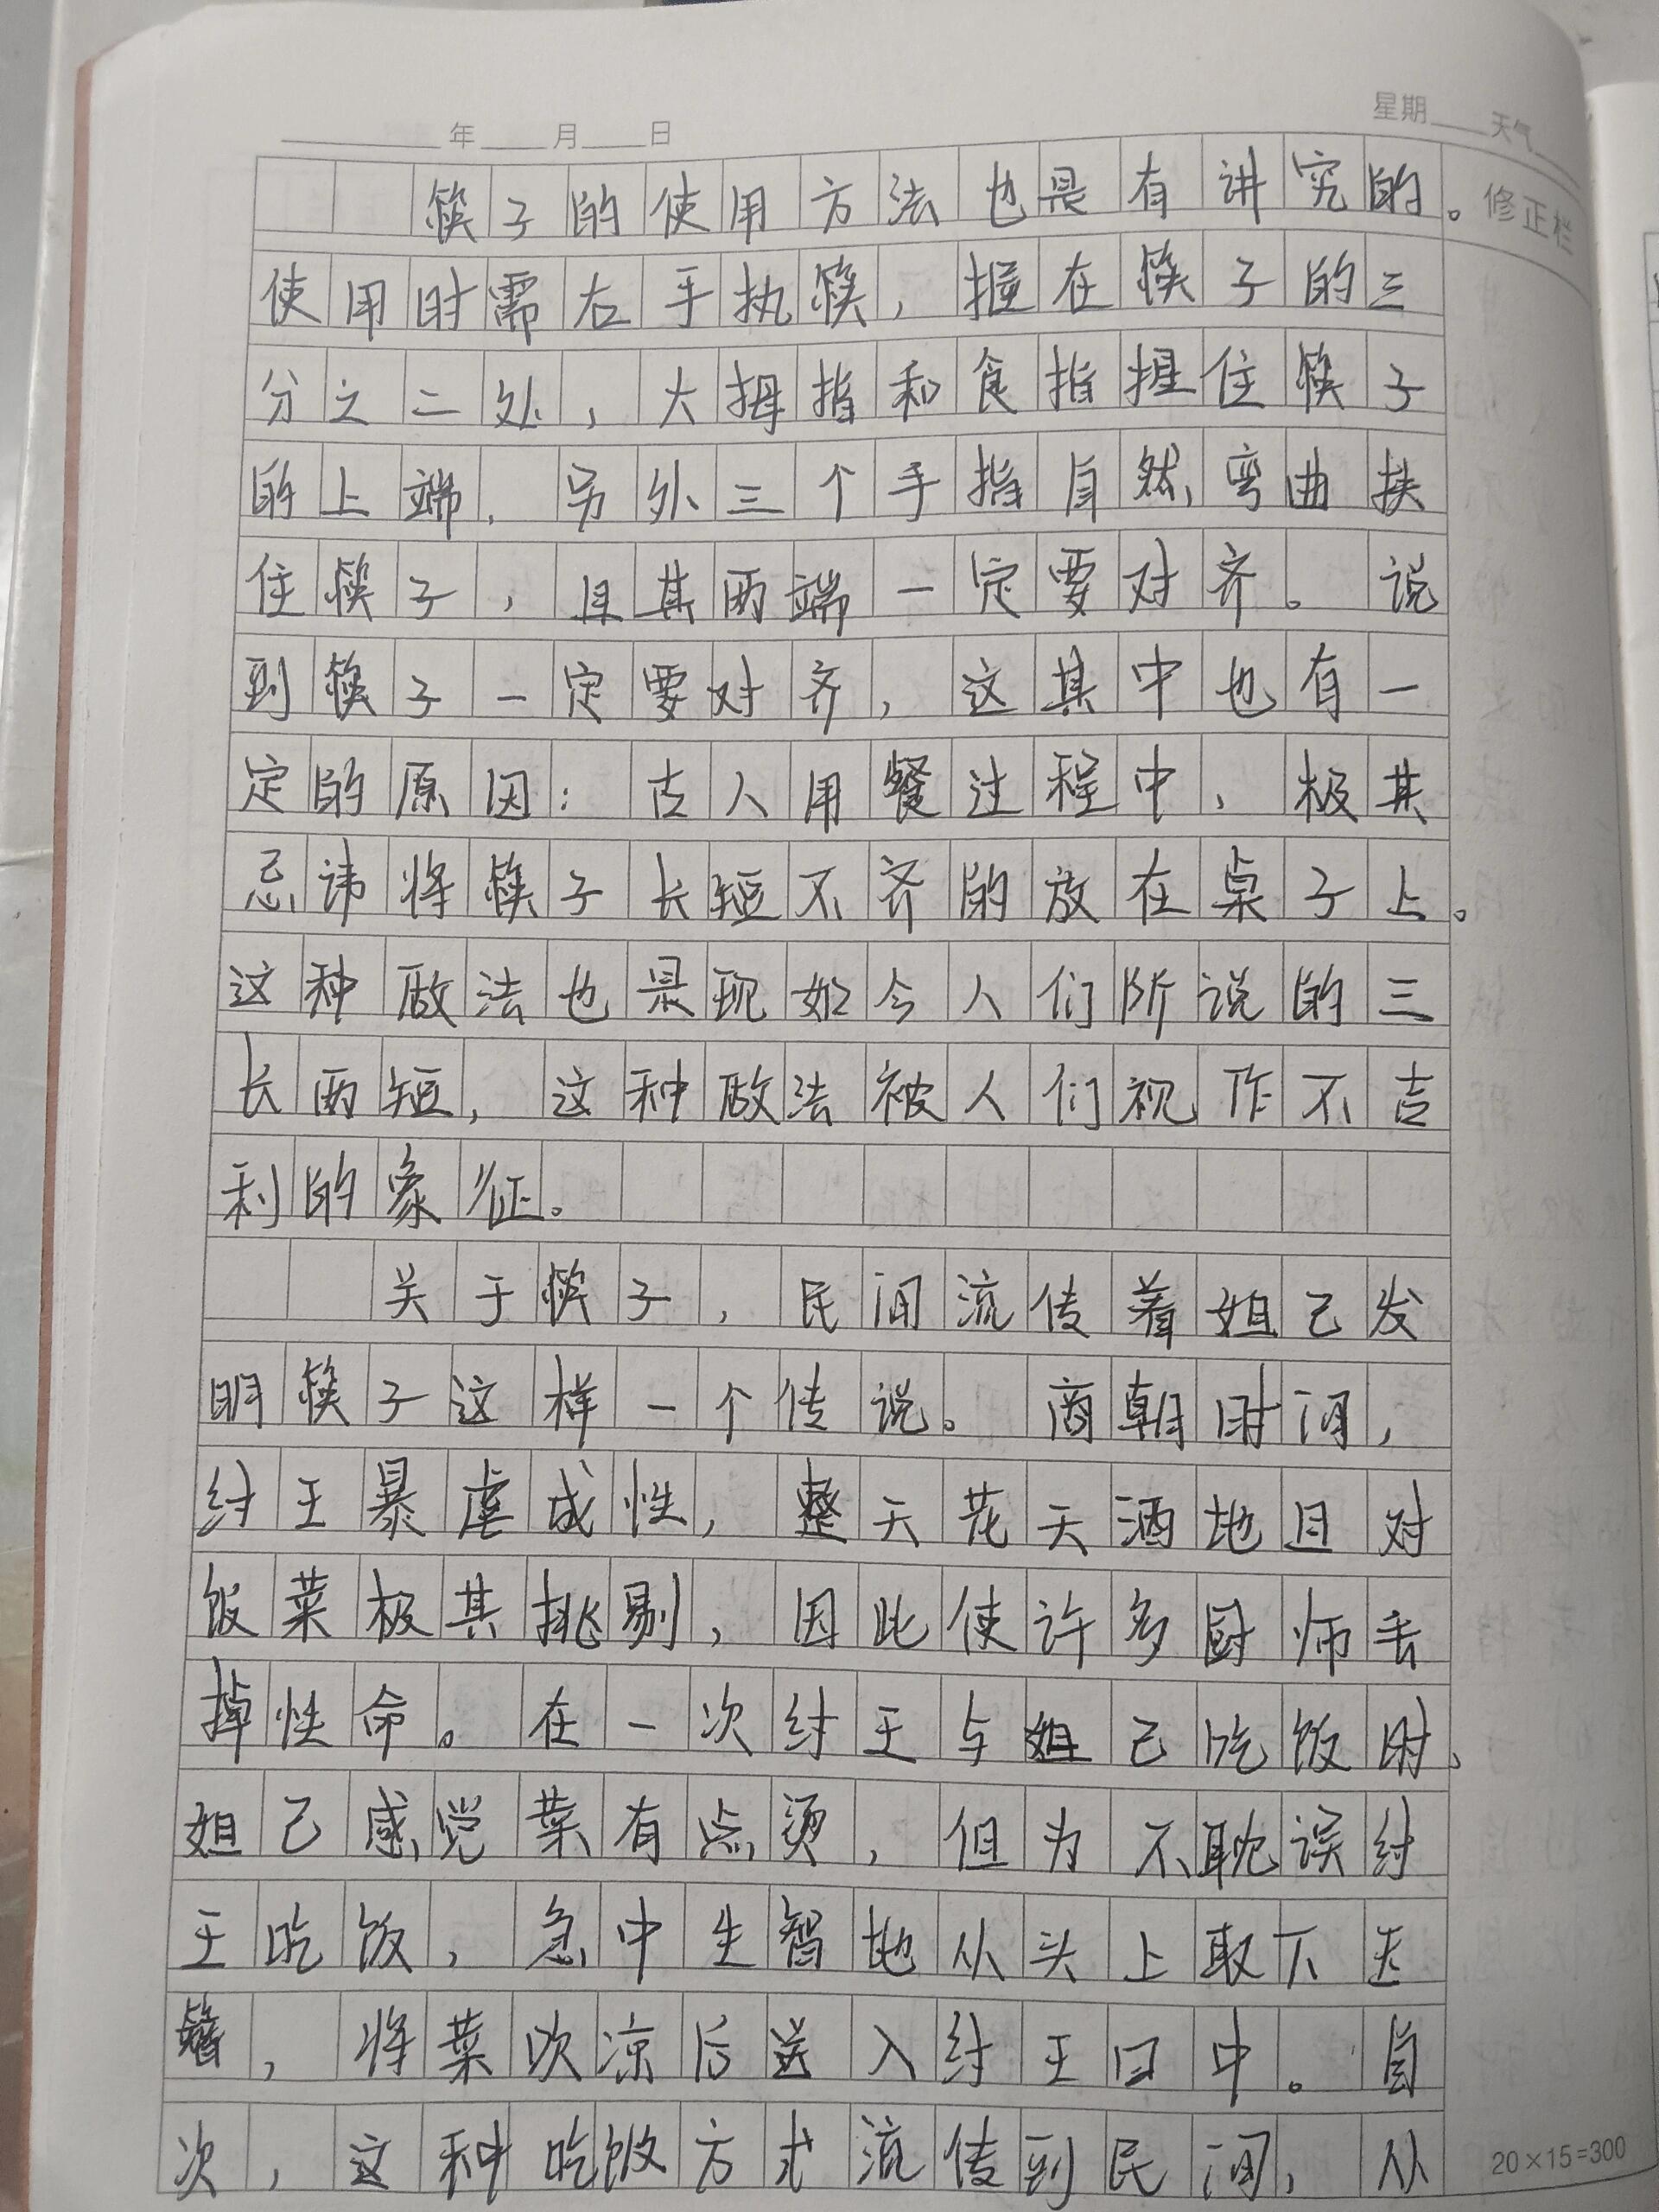 年 月 日 星期 天气
修正栏
筷子的使用方法也是有讲究的。
使用时需右手执筷，握在筷子的三
分之二处，大拇指和食指握住筷子
的上端，另外三个手指自然弯曲扶
住筷子，且其两端一定要对齐。说
到筷子一定要对齐，这其中也有一
定的原因：古人用餐过程中，极其
忌讳将筷子长短不齐的放在桌子上。
这种做法也是现如今人们所说的三
长两短，这种做法被人们视作不吉
利的象征。
关于筷子，民间流传着妲己发
明筷子这样一个传说。商朝时间，
纣王暴虐成性，整天花天酒地且对
饭菜极其挑剔，因此使许多厨师丢
掉性命。在一次纣王与妲己吃饭时，
妲己感觉菜有点烫，但为不耽误纣
王吃饭，急中生智地从头上取下玉
簪，将菜吹凉后送入纣王口中。自
次，这种吃饭方式流传到民间，从
20×15=300